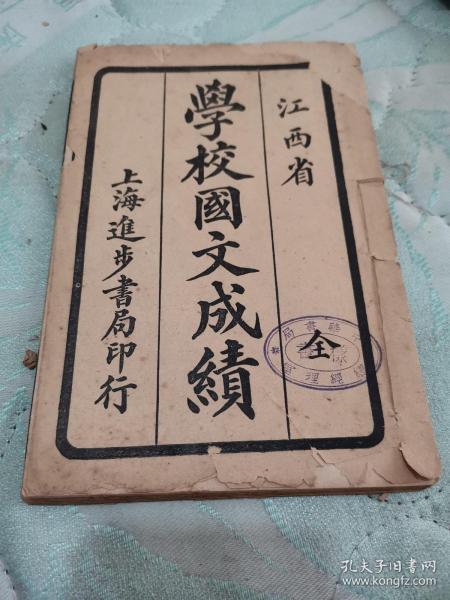 江西省
學校國文成績
全
上海進步書局印行
孔夫子旧书网
www.kongfz.com